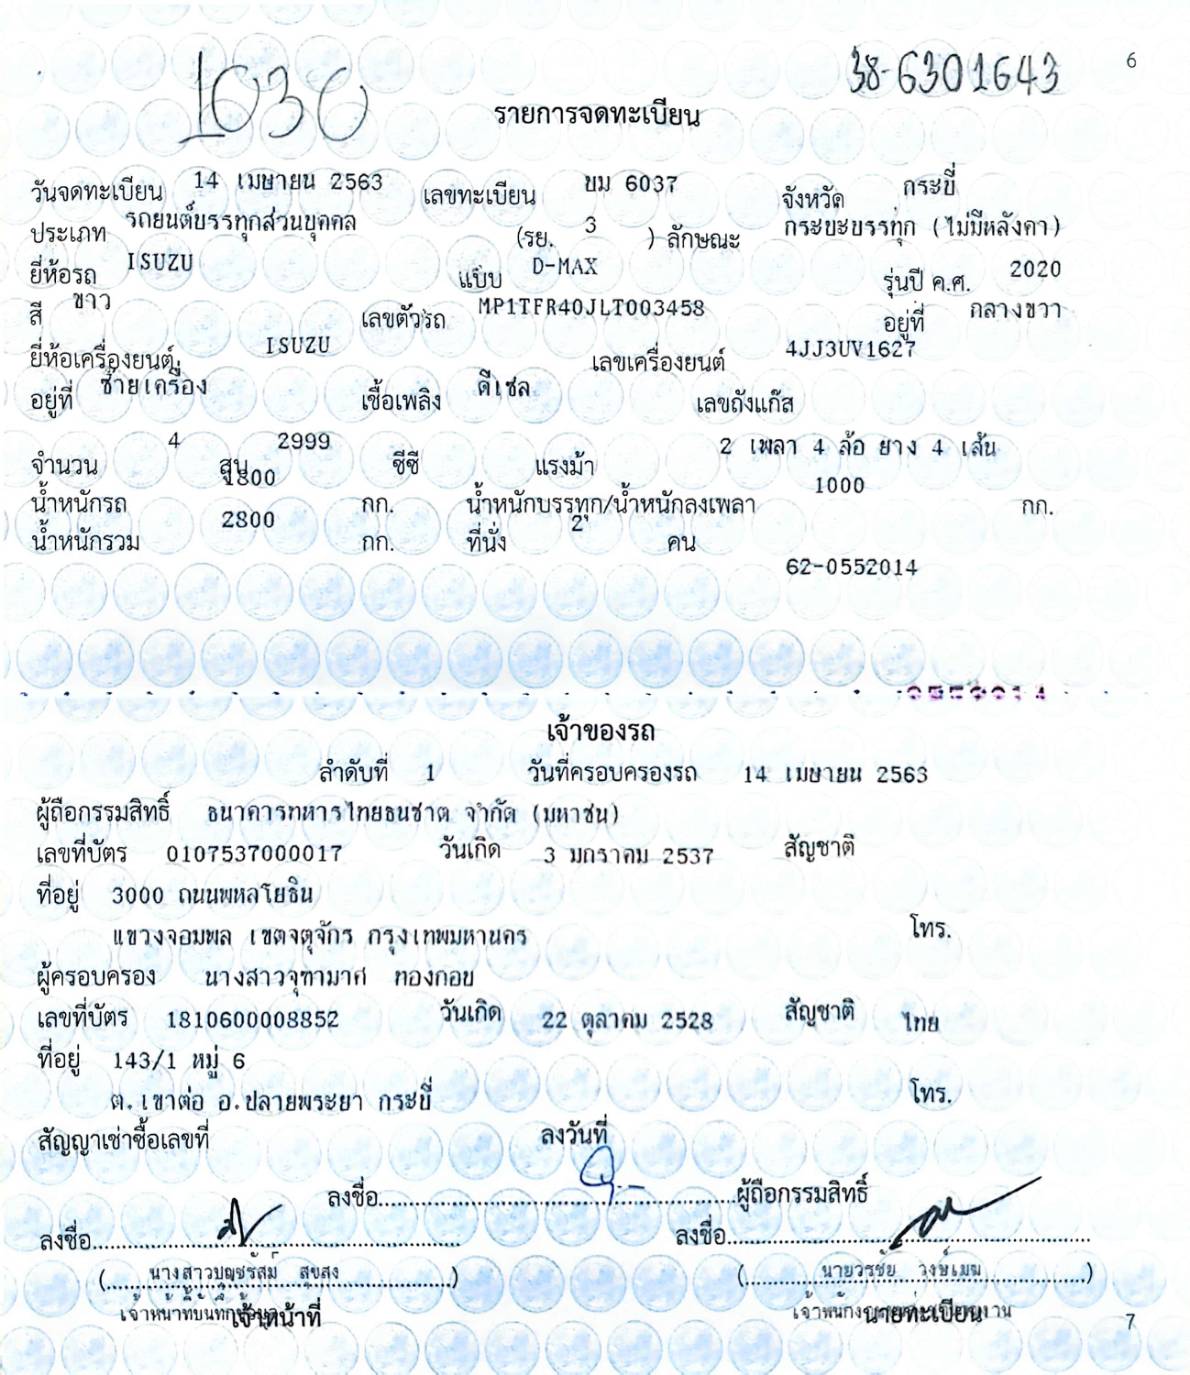 1030
38-6301643
6
รายการจดทะเบียน
วันจดทะเบียน 14 เมษายน 2563 เลขทะเบียน บม 6037 จังหวัด กระบี่
ประเภท รถยนต์บรรทุกส่วนบุคคล (รย. 3 ) ลักษณะ กระบะบรรทุก (ไม่มีหลังคา)
ยี่ห้อรถ ISUZU แบบ D-MAX รุ่นปี ค.ศ. 2020
สี ขาว เลขตัวรถ MP1TFR40JLT003458 อยู่ที่ กลางขวา
ยี่ห้อเครื่องยนต์ ISUZU เลขเครื่องยนต์ 4JJ3UV1627
อยู่ที่ ซ้ายเครื่อง เชื้อเพลิง ดีเซล เลขถังแก๊ส
จำนวน 4 สูบ 2999 ซีซี แรงม้า 2 เพลา 4 ล้อ ยาง 4 เส้น
น้ำหนักรถ 1800 กก. น้ำหนักบรรทุก/น้ำหนักลงเพลา 1000 กก.
น้ำหนักรวม 2800 กก. ที่นั่ง 2 คน
62-0552014
เจ้าของรถ
ลำดับที่ 1 วันที่ครอบครองรถ 14 เมษายน 2563
ผู้ถือกรรมสิทธิ์ ธนาคารทหารไทยธนชาต จำกัด (มหาชน)
เลขที่บัตร 0107537000017 วันเกิด 3 มกราคม 2537 สัญชาติ
ที่อยู่ 3000 ถนนพหลโยธิน
แขวงจอมพล เขตจตุจักร กรุงเทพมหานคร โทร.
ผู้ครอบครอง นางสาวจุฑามาศ ทองกอบ
เลขที่บัตร 1810600008852 วันเกิด 22 ตุลาคม 2528 สัญชาติ ไทย
ที่อยู่ 143/1 หมู่ 6
ต.เขาต่อ อ.ปลายพระยา กระบี่ โทร.
สัญญาเช่าซื้อเลขที่ ลงวันที่
ลงชื่อ....................ผู้ถือกรรมสิทธิ์
ลงชื่อ.................... ลงชื่อ....................
(นางสาวบุญชรัสมิ์ สุขสง) (นายวรชัย วงษ์เมฆ)
เจ้าหน้าที่บันทึกข้อมูล เจ้าหน้าที่ นายทะเบียน
7